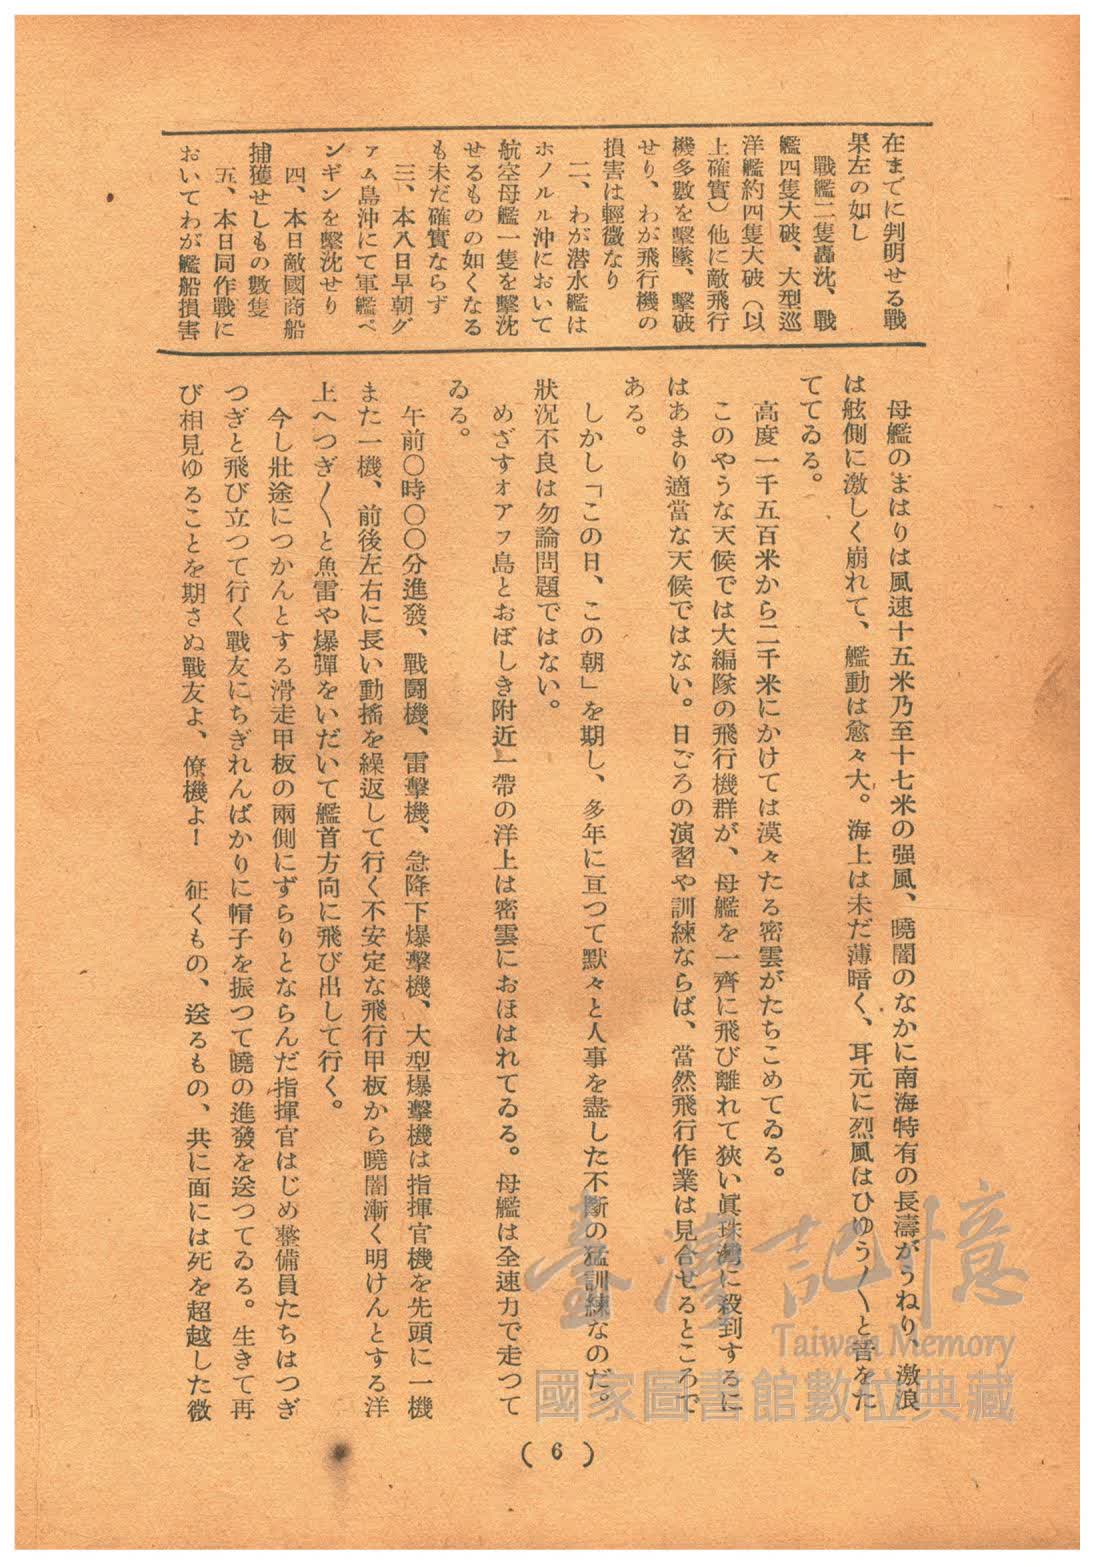 在までに判明せる戰
果左の如し
戰艦二隻轟沈、戰
艦四隻大破、大型巡
洋艦約四隻大破（以
上確實）他に敵飛行
機多數を擊墜、擊破
せり、わが飛行機の
損害は輕微なり
二、わが潜水艦は
ホノルル沖において
航空母艦一隻を擊沈
せるものの如くなる
も未だ確實ならず
三、本八日早朝グ
ァム島沖にて軍艦ペ
ンギンを擊沈せり
四、本日敵國商船
捕獲せしもの數隻
五、本日同作戰に
おいてわが艦船損害
母艦のまはりは風速十五米乃至十七米の强風、曉闇のなかに南海特有の長濤がうねり、激浪
は舷側に激しく崩れて、艦動は愈々大。海上は未だ薄暗く、耳元に烈風はひゆう〱と音をた
ててゐる。
高度一千五百米から二千米にかけては漠々たる密雲がたちこめてゐる。
このやうな天候では大編隊の飛行機群が、母艦を一齊に飛び離れて狹い眞珠灣に殺到するに
はあまり適當な天候ではない。日ごろの演習や訓練ならば、當然飛行作業は見合せるところで
ある。
しかし「この日、この朝」を期し、多年に亘つて默々と人事を盡した不斷の猛訓練なのだ。
狀況不良は勿論問題ではない。
めざすオアフ島とおぼしき附近一帶の洋上は密雲におほはれてゐる。母艦は全速力で走つて
ゐる。
午前〇時〇〇分進發、戰鬪機、雷擊機、急降下爆擊機、大型爆擊機は指揮官機を先頭に一機
また一機、前後左右に長い動搖を繰返して行く不安定な飛行甲板から曉闇漸く明けんとする洋
上へつぎ〱と魚雷や爆彈をいだいて艦首方向に飛び出して行く。
今し壯途につかんとする滑走甲板の兩側にずらりとならんだ指揮官はじめ整備員たちはつぎ
つぎと飛び立つて行く戰友にちぎれんばかりに帽子を振つて曉の進發を送つてゐる。生きて再
び相見ゆることを期さぬ戰友よ、僚機よ！　征くもの、送るもの、共に面には死を超越した微
臺灣記憶
Taiwan Memory
國家圖書館數位典藏
( 6 )